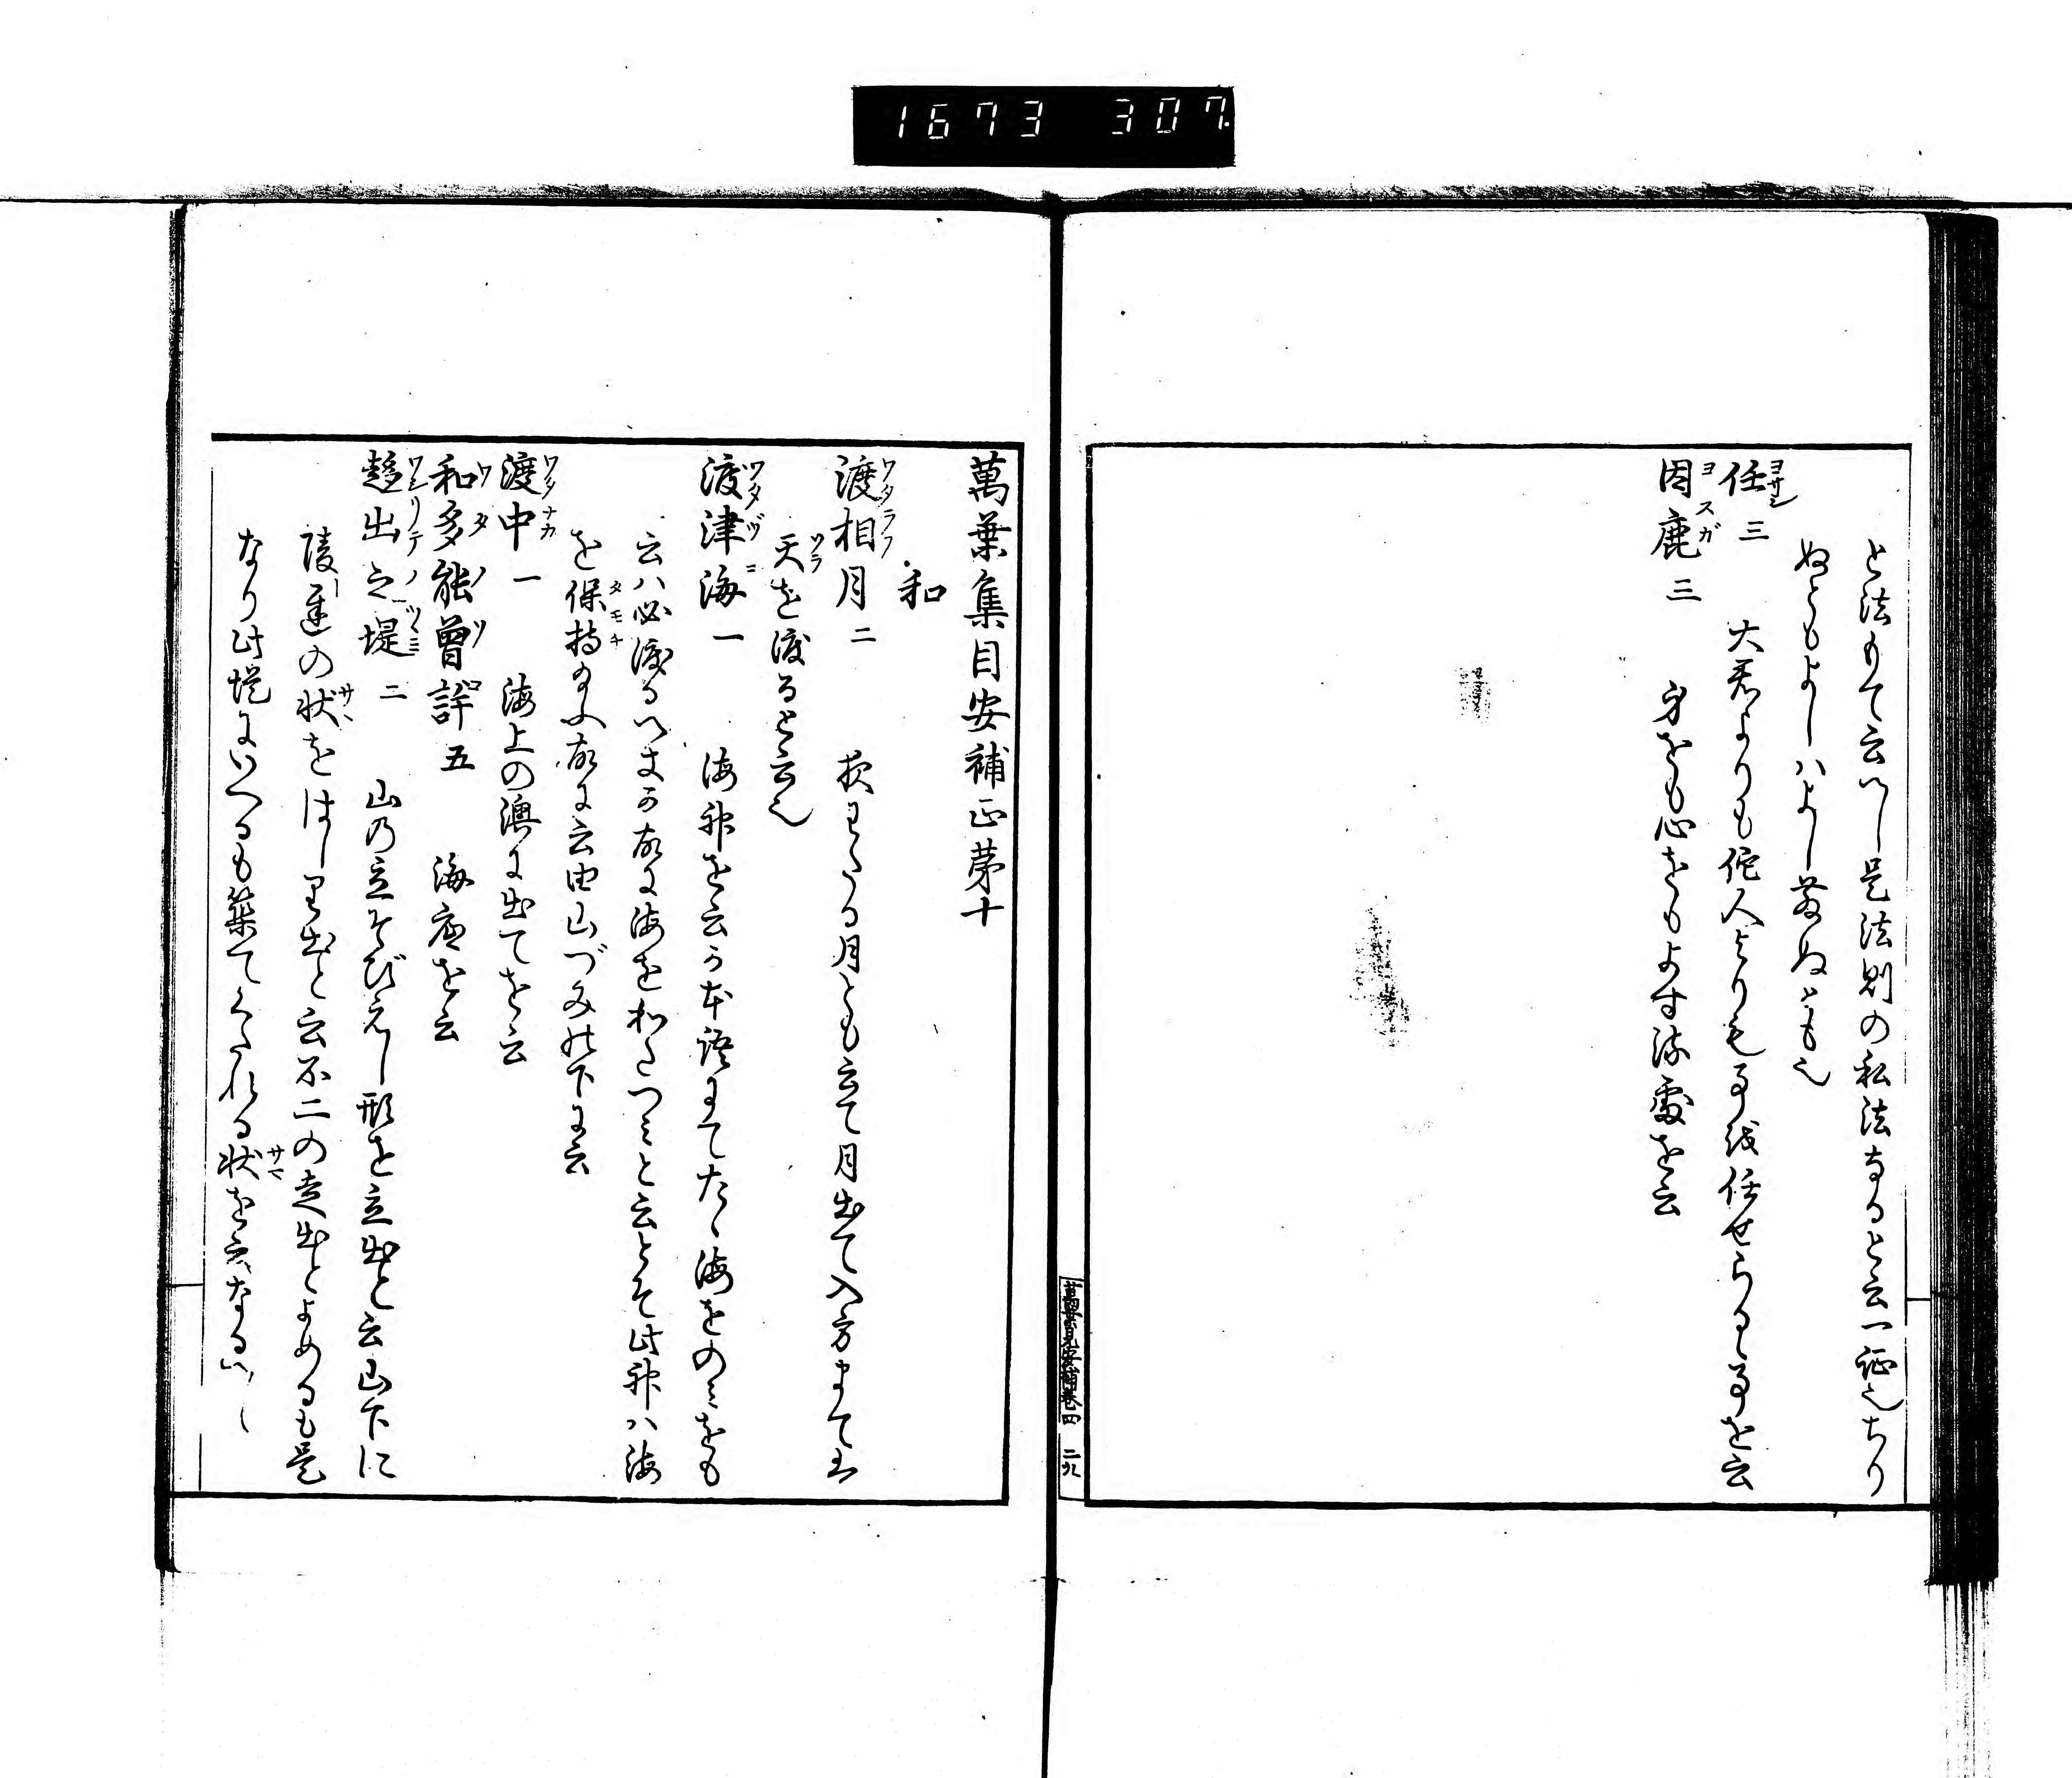 1673 307
と法もて云へし是法則の私法なると云一証也ちり
ぬともよしハよし落ぬとも也
任三 大君よりも佗人よりも事我任せらるゝ事を云
ヨサシ
因鹿三 身をも心をもよする處を云
ヨスガ
萬葉集目安補巻四 二九
萬葉集目安補正第十
和
渡相月二 夜わたる月とも云て月出て入方まて
ワタラフ
天を渡ると云也
ソラ
渡津海一 海神を云か本語にてたゝ海をのミをも
ワタヅミ
云ハ必渡るへきか故に海をわたつミと云とそ此神ハ海
を保持 故に云由山づみの下に云
タモチ
渡中一 海上の澳に出てを云
ワタナカ
和多能曽許五 海底を云
ワタノソコ
趍出之堤二 山乃立そびえし形を立出と云山下に
ワシリテノツヽミ
陵遅の状をはしり出と云不二の走出とよめるも是
サマ
なり此堤にいへるも築てくたれる状を云なるへし
サマ